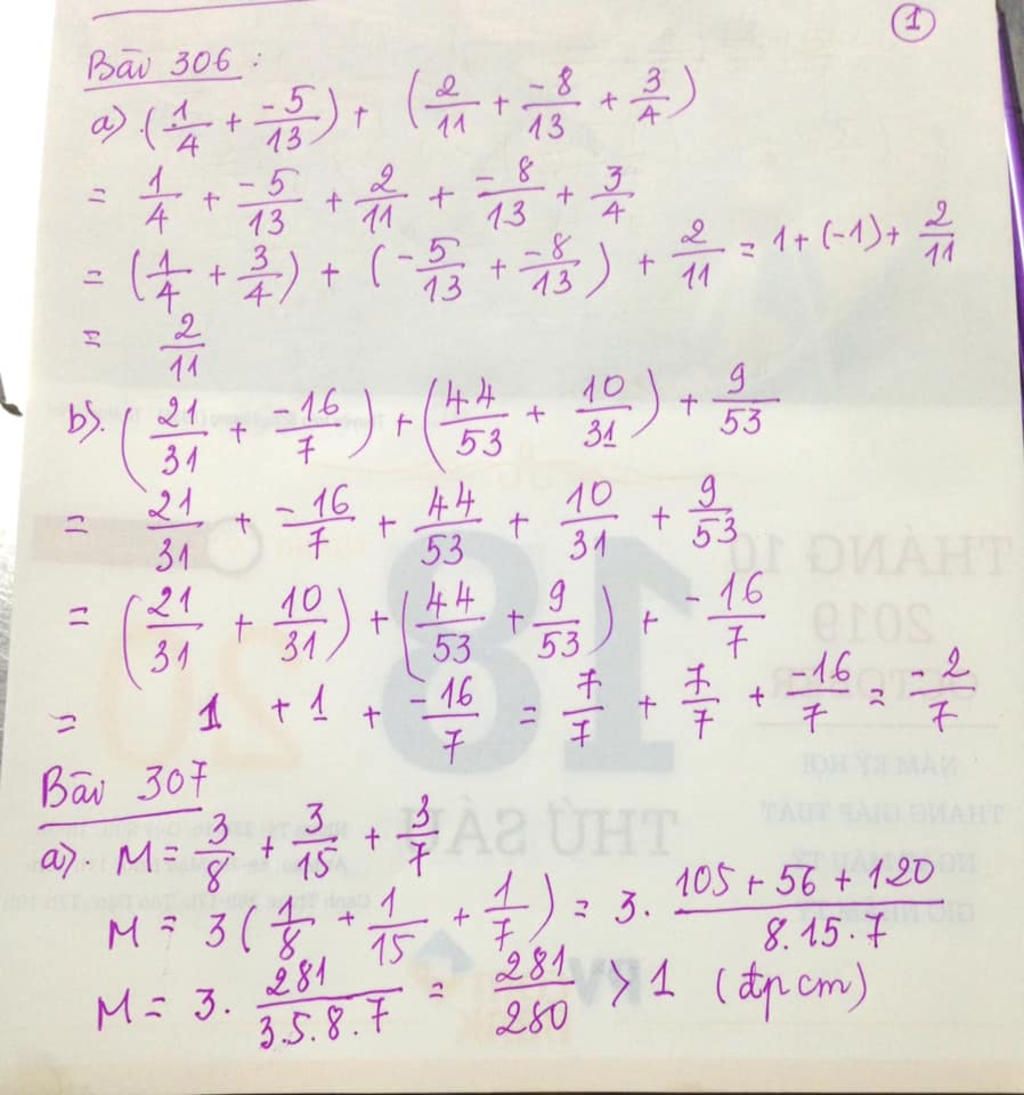 1
Bài 306 :
a) (1/4 + -5/13) + (2/11 + -8/13 + 3/4)
= 1/4 + -5/13 + 2/11 + -8/13 + 3/4
= (1/4 + 3/4) + (-5/13 + -8/13) + 2/11 = 1 + (-1) + 2/11
= 2/11
b). (21/31 + -16/7) + (44/53 + 10/31) + 9/53
= 21/31 + -16/7 + 44/53 + 10/31 + 9/53
= (21/31 + 10/31) + (44/53 + 9/53) + -16/7
= 1 + 1 + -16/7 = 7/7 + 7/7 + -16/7 = -2/7
Bài 307
a) M = 3/8 + 3/15 + 3/7
M = 3(1/8 + 1/15 + 1/7) = 3. 105 + 56 + 120/8.15.7
M = 3. 281/3.5.8.7 = 281/280 > 1 (đpcm)
THÁNG 10
2019
OCTOBER
18
20
THỨ SÁU
NĂM KỶ HỢI
THÁNG GIÁP TUẤT